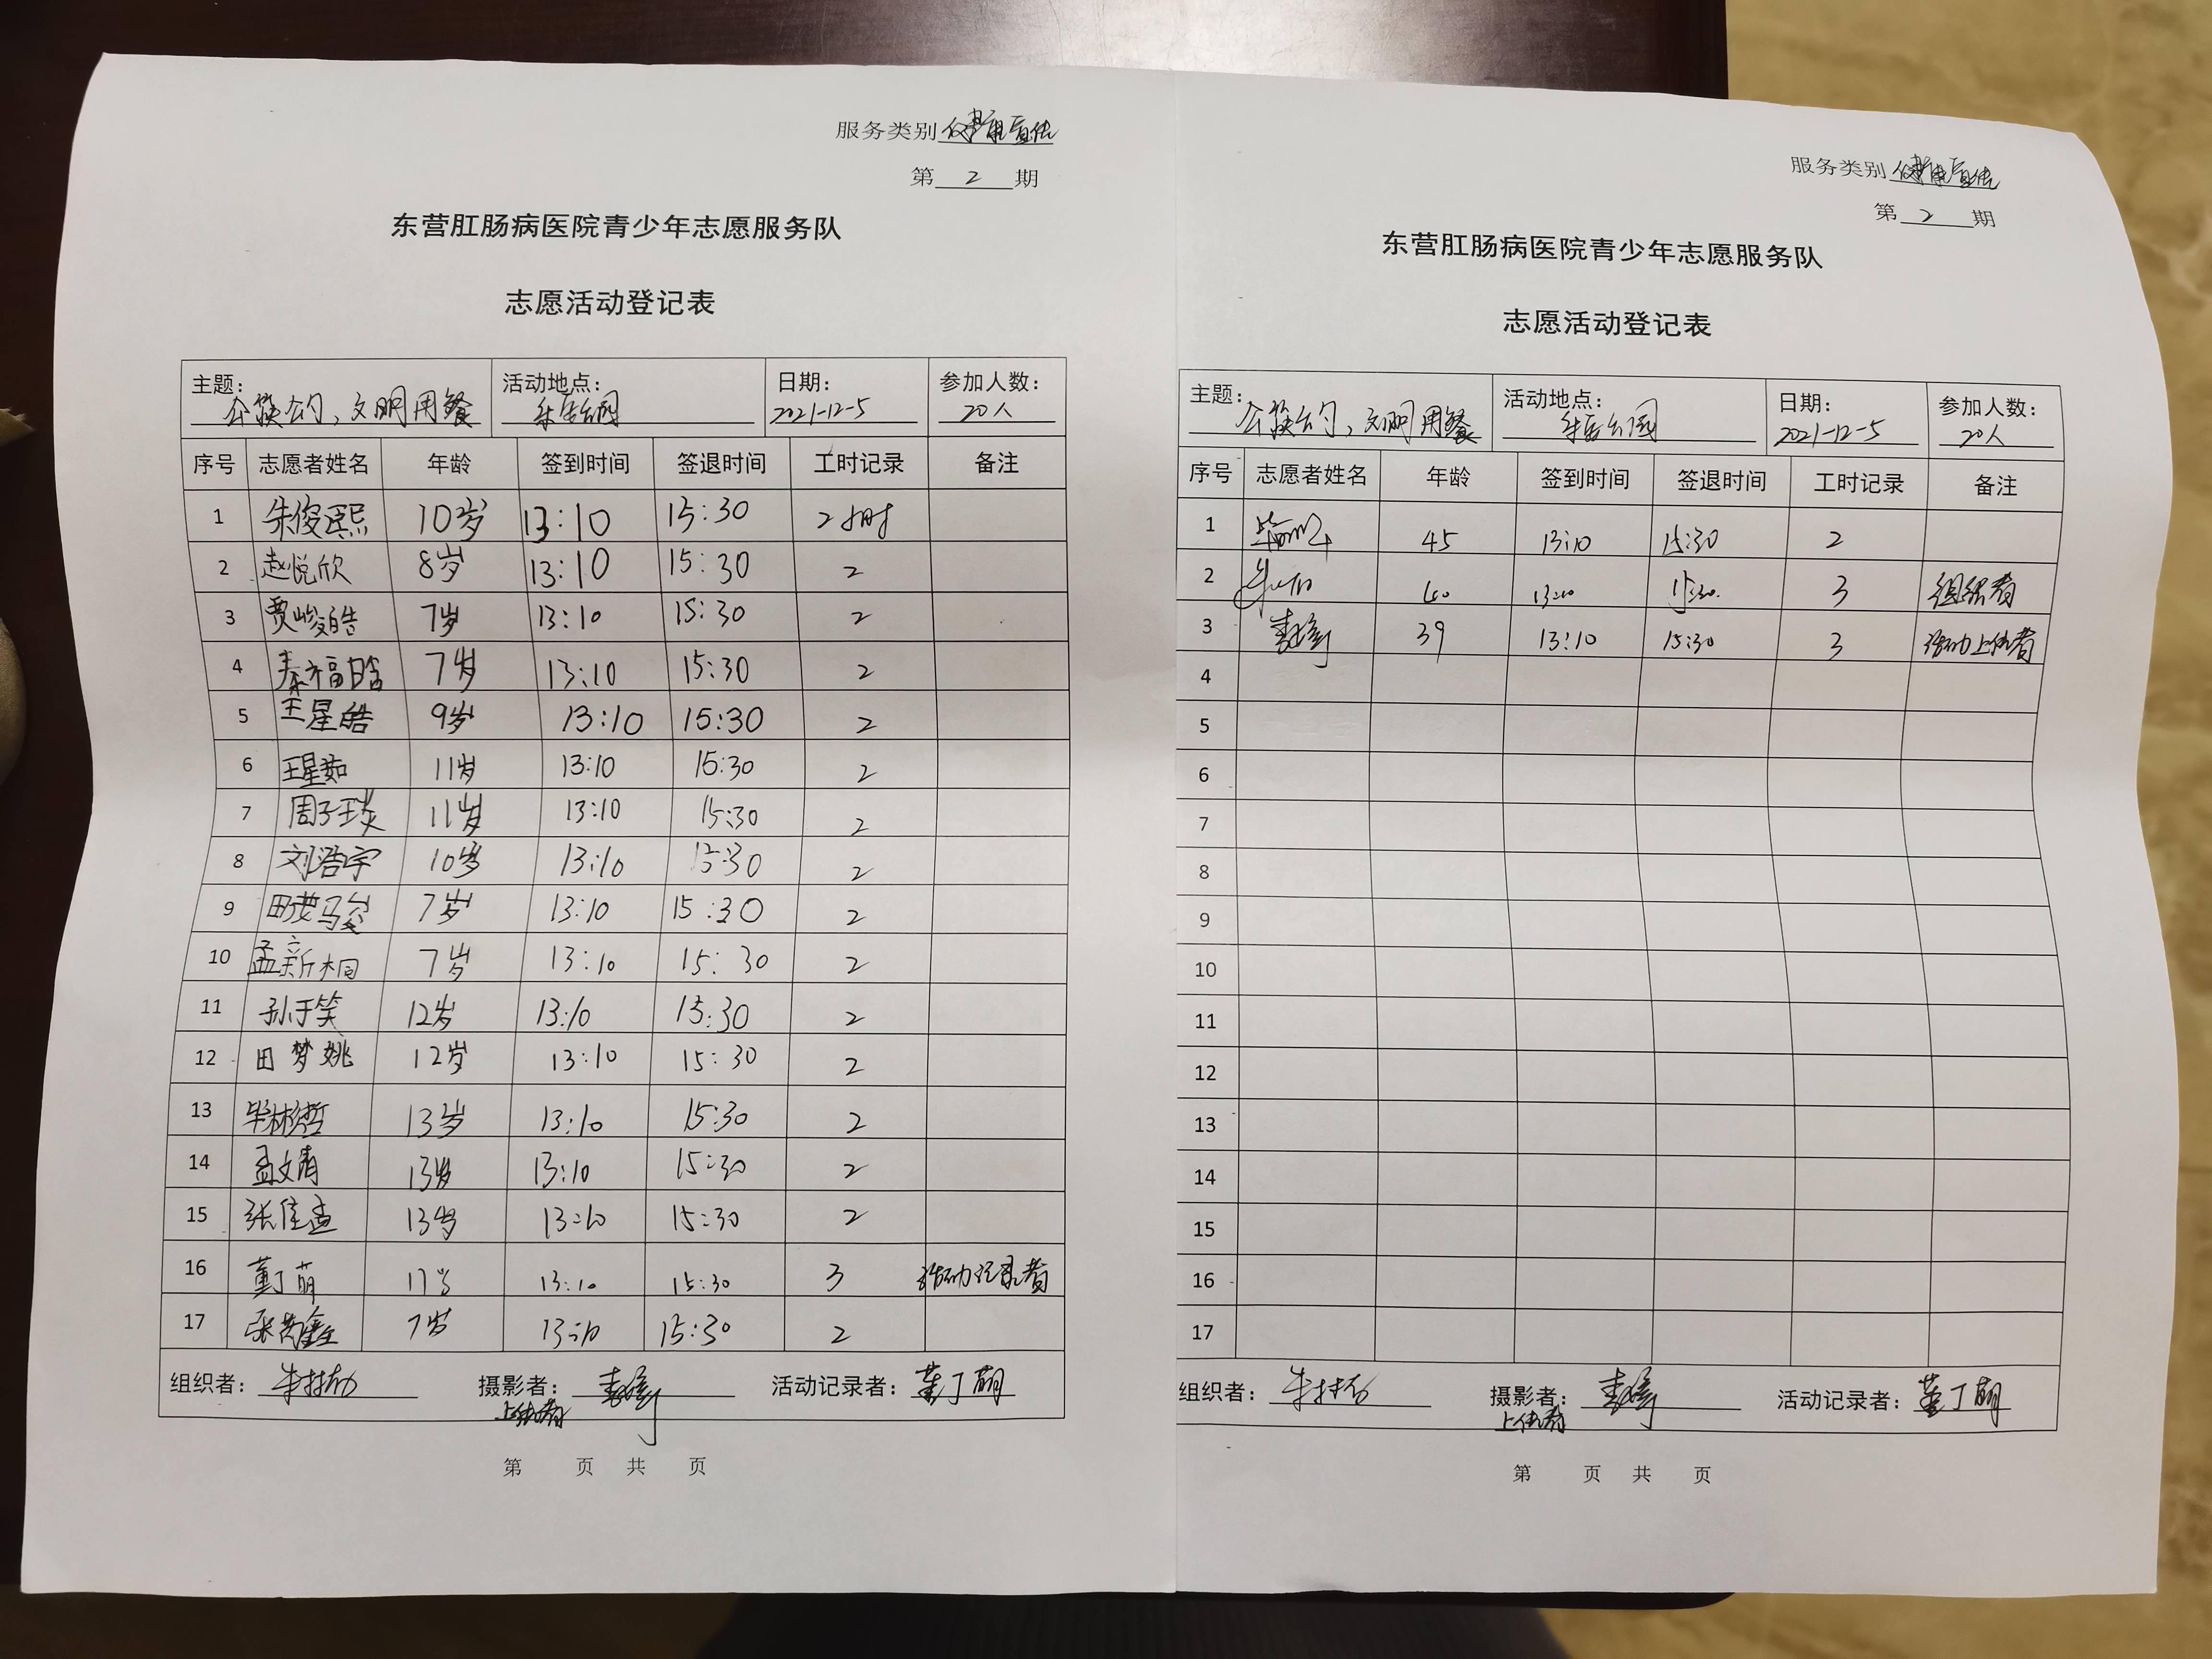 服务类别 健康宣传
第 2 期
东营肛肠病医院青少年志愿服务队
志愿活动登记表
主题: 公筷公勺、文明用餐 活动地点: 日期: 2021-12-5 参加人数: 20人
序号 志愿者姓名 年龄 签到时间 签退时间 工时记录 备注
1 朱俊熙 10岁 13:10 15:30 2小时
2 赵悦欣 8岁 13:10 15:30 2
3 贾峻皓 7岁 13:10 15:30 2
4 秦福皓 7岁 13:10 15:30 2
5 王星皓 9岁 13:10 15:30 2
6 王星茹 11岁 13:10 15:30 2
7 周子琰 11岁 13:10 15:30 2
8 刘浩宇 10岁 13:10 15:30 2
9 7岁 13:10 15:30 2
10 孟新桐 7岁 13:10 15:30 2
11 孙于笑 12岁 13:10 15:30 2
12 田梦姚 12岁 13:10 15:30 2
13 毕彬哲 13岁 13:10 15:30 2
14 孟文清 13岁 13:10 15:30 2
15 张佳孟 13岁 13:10 15:30 2
16 董丁萌 11岁 13:10 15:30 3 活动记录者
17 7岁 13:10 15:30 2
组织者: 摄影者: 活动记录者: 董丁萌
上传者
第 页 共 页
服务类别 健康宣传
第 2 期
东营肛肠病医院青少年志愿服务队
志愿活动登记表
主题: 公筷公勺、文明用餐 活动地点: 日期: 2021-12-5 参加人数: 20人
序号 志愿者姓名 年龄 签到时间 签退时间 工时记录 备注
1 45 13:10 15:30 2
2 40 13:10 15:30 3 组织者
3 39 13:10 15:30 3 活动上传者
4
5
6
7
8
9
10
11
12
13
14
15
16
17
组织者: 摄影者: 活动记录者: 董丁萌
上传者
第 页 共 页